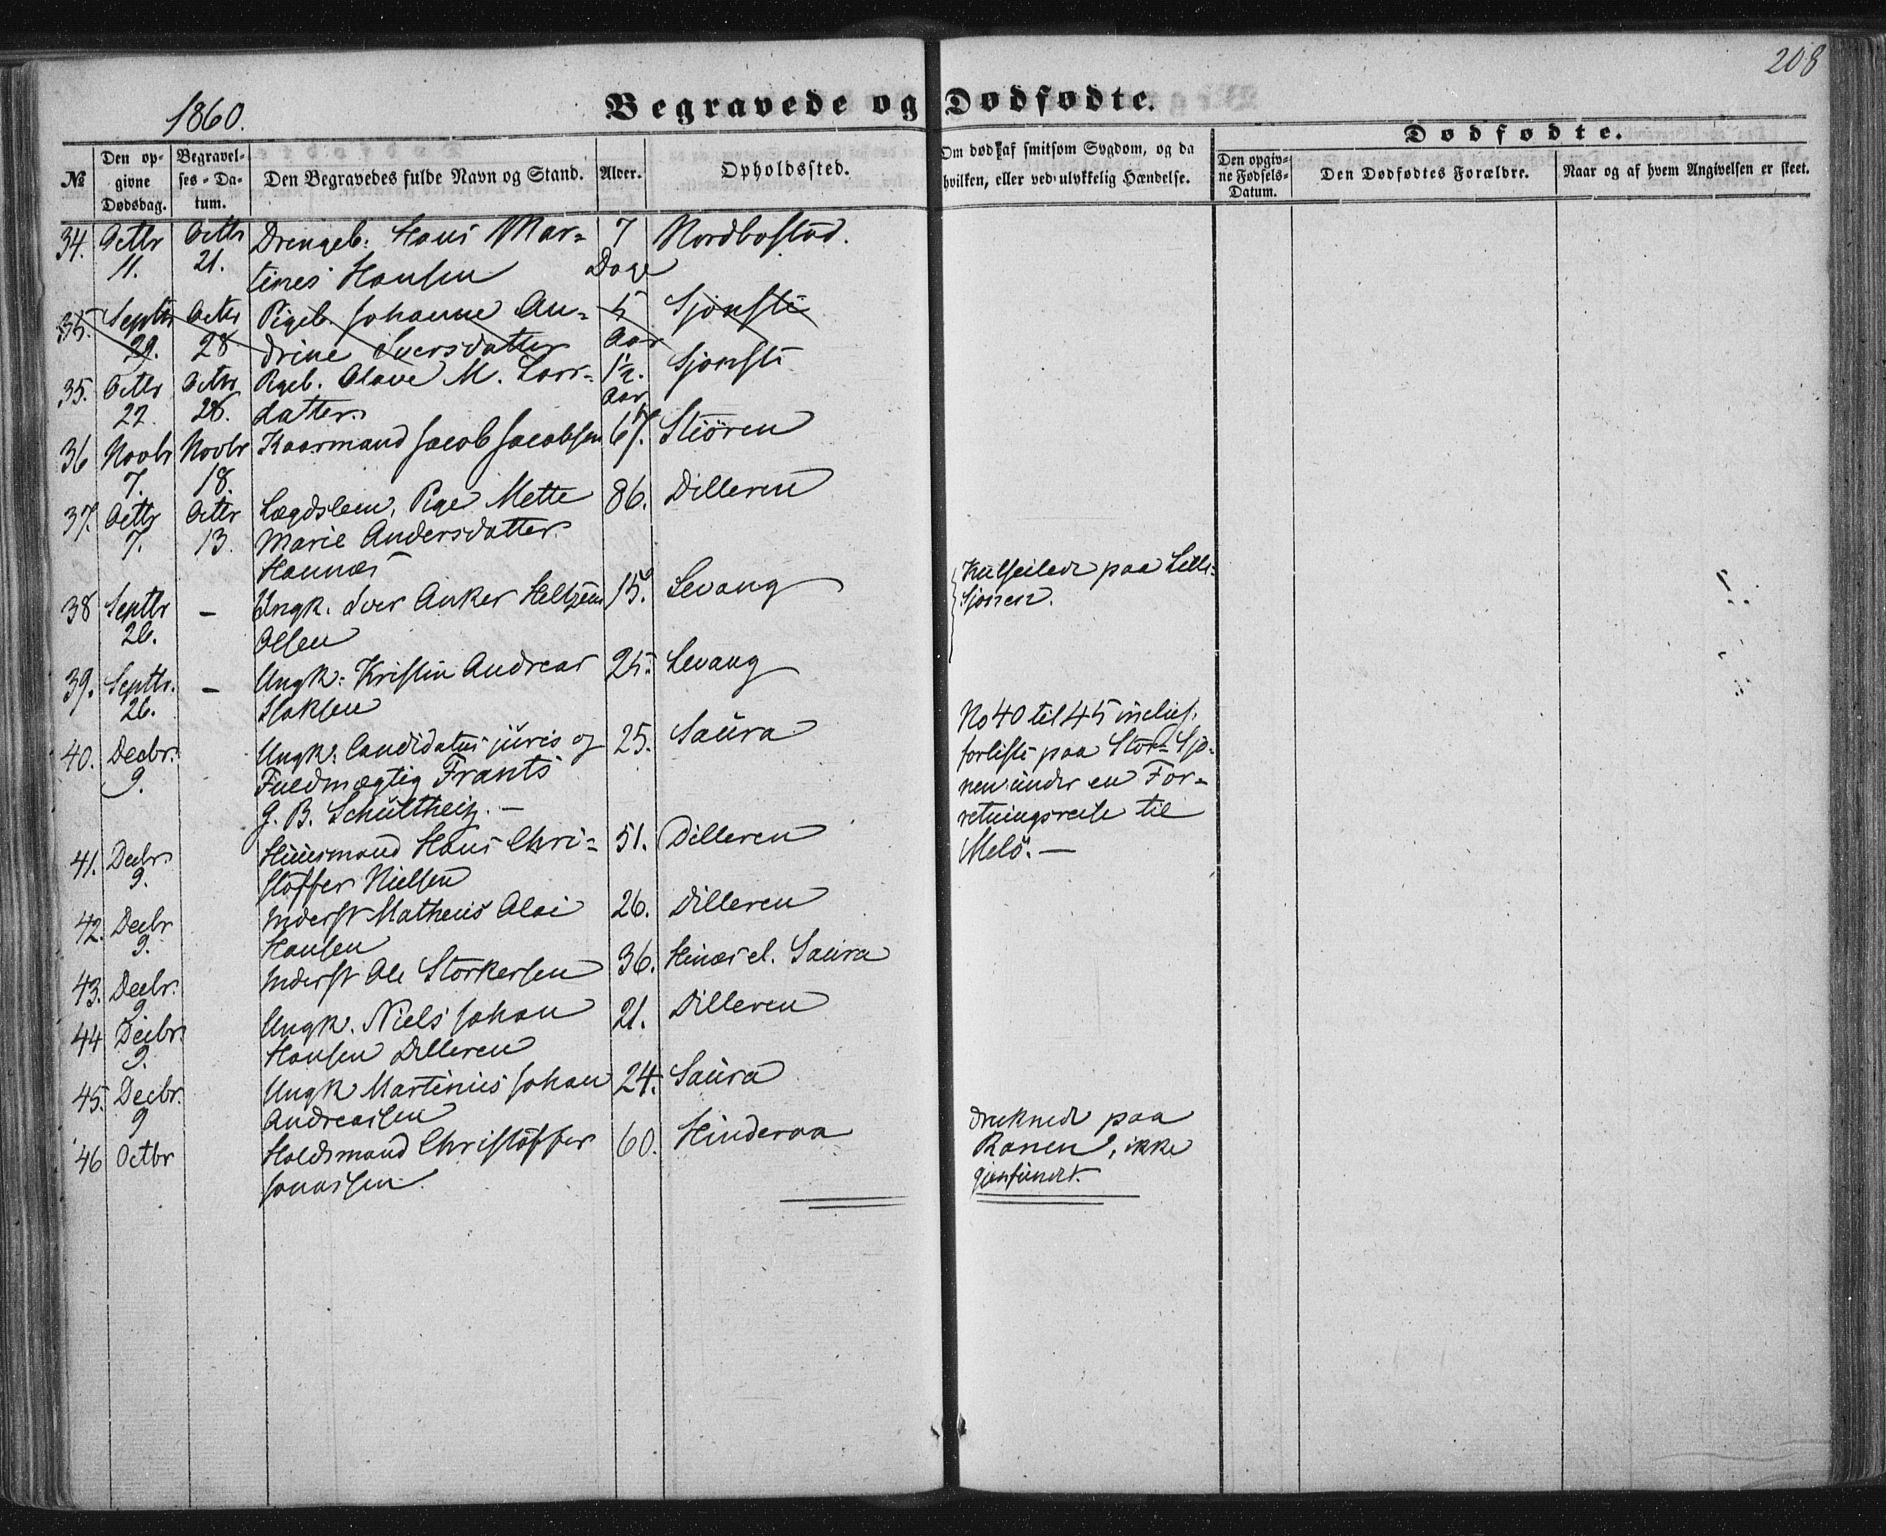 208
1860.
Begravede og Dødfødte.
Dødfødte.
№
Den op-
givne
Dødsdag.
Begravel-
ses-Da-
tum.
Den Begravedes fulde Navn og Stand.
Alder.
Opholdssted.
Om død af smitsom Sygdom, og da
hvilken, eller ved ulykkelig Hændelse.
Den opgiv-
ne Fødsels-
Datum.
Den Dødfødtes Forældre.
Naar og af hvem Angivelsen er skeet.
34. Octbr Octbr Drengeb. Hans Mar- 7 Nordbostad.
11. 21. tines Hansen Dage
35. Septbr Octbr Pigeb. Johanne An- 5 Sjonsti
29. 28 drine Iversdatter Aar
35. Octbr Octbr Pigeb. Olave M. Lars- 1½ Sjonsti
22. 28. datter. Aar
36 Novbr Novbr Kaarmand Jacob Jacobsen 67. Stiören
7. 18.
37. Octbr Octbr Lægdslem, Pige Mette 86. Dilleren
7. 13. Marie Andersdatter
Hannæs
38 Septbr - Ungk. Iver Anker Heltzen 15. Levang Kulseilede paa Lille-
26. Olsen Sjonen.
39. Septbr. - Ungk: Kristen Andreas 25. Levang
26. Isaksen
40. Decbr. Ungk: Candidatus juris og 25. Saura No 40 til 45 inclus.
9. Fuldmægtig Frants forliste paa Stor-Sjo-
G. B. Schultheiz. - nen under en For-
retningsreise til
41. Decbr. Huusmand Hans Chri- 51. Dilleren Melö. -
9. stoffer Nielsen
42. Decbr Inderst Matheus Olai 26. Dilleren
9. Hansen
43. Decbr. Inderst Ole Storkersen 36. Hinæs el. Saura
9
44 Decbr. Ungk. Niels Johan 21. Dilleren
9. Hansen Dilleren
45. Decbr. Ungk Martinus Johan 24. Saura
9 Andreassen
46 Octbr Holdsmand Christoffer 60. Hinderaa druknede paa
Jonassen. Ranen, ikke
gjenfundet.